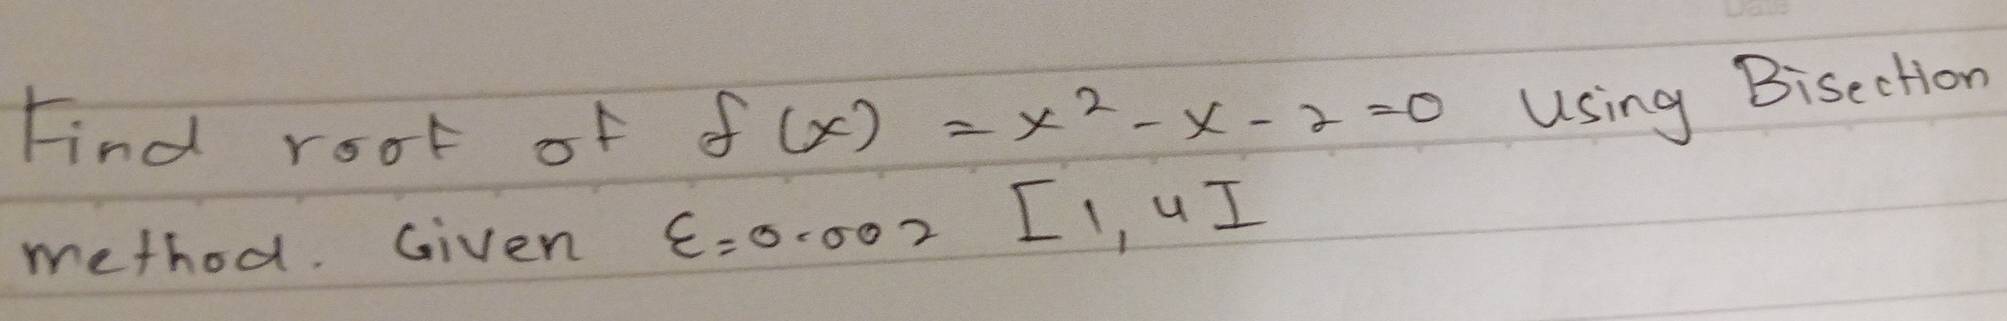 Find root of f(x) = x² - x - 2 = 0 Using Bisection
method. Given ε=0.002 [1,4]